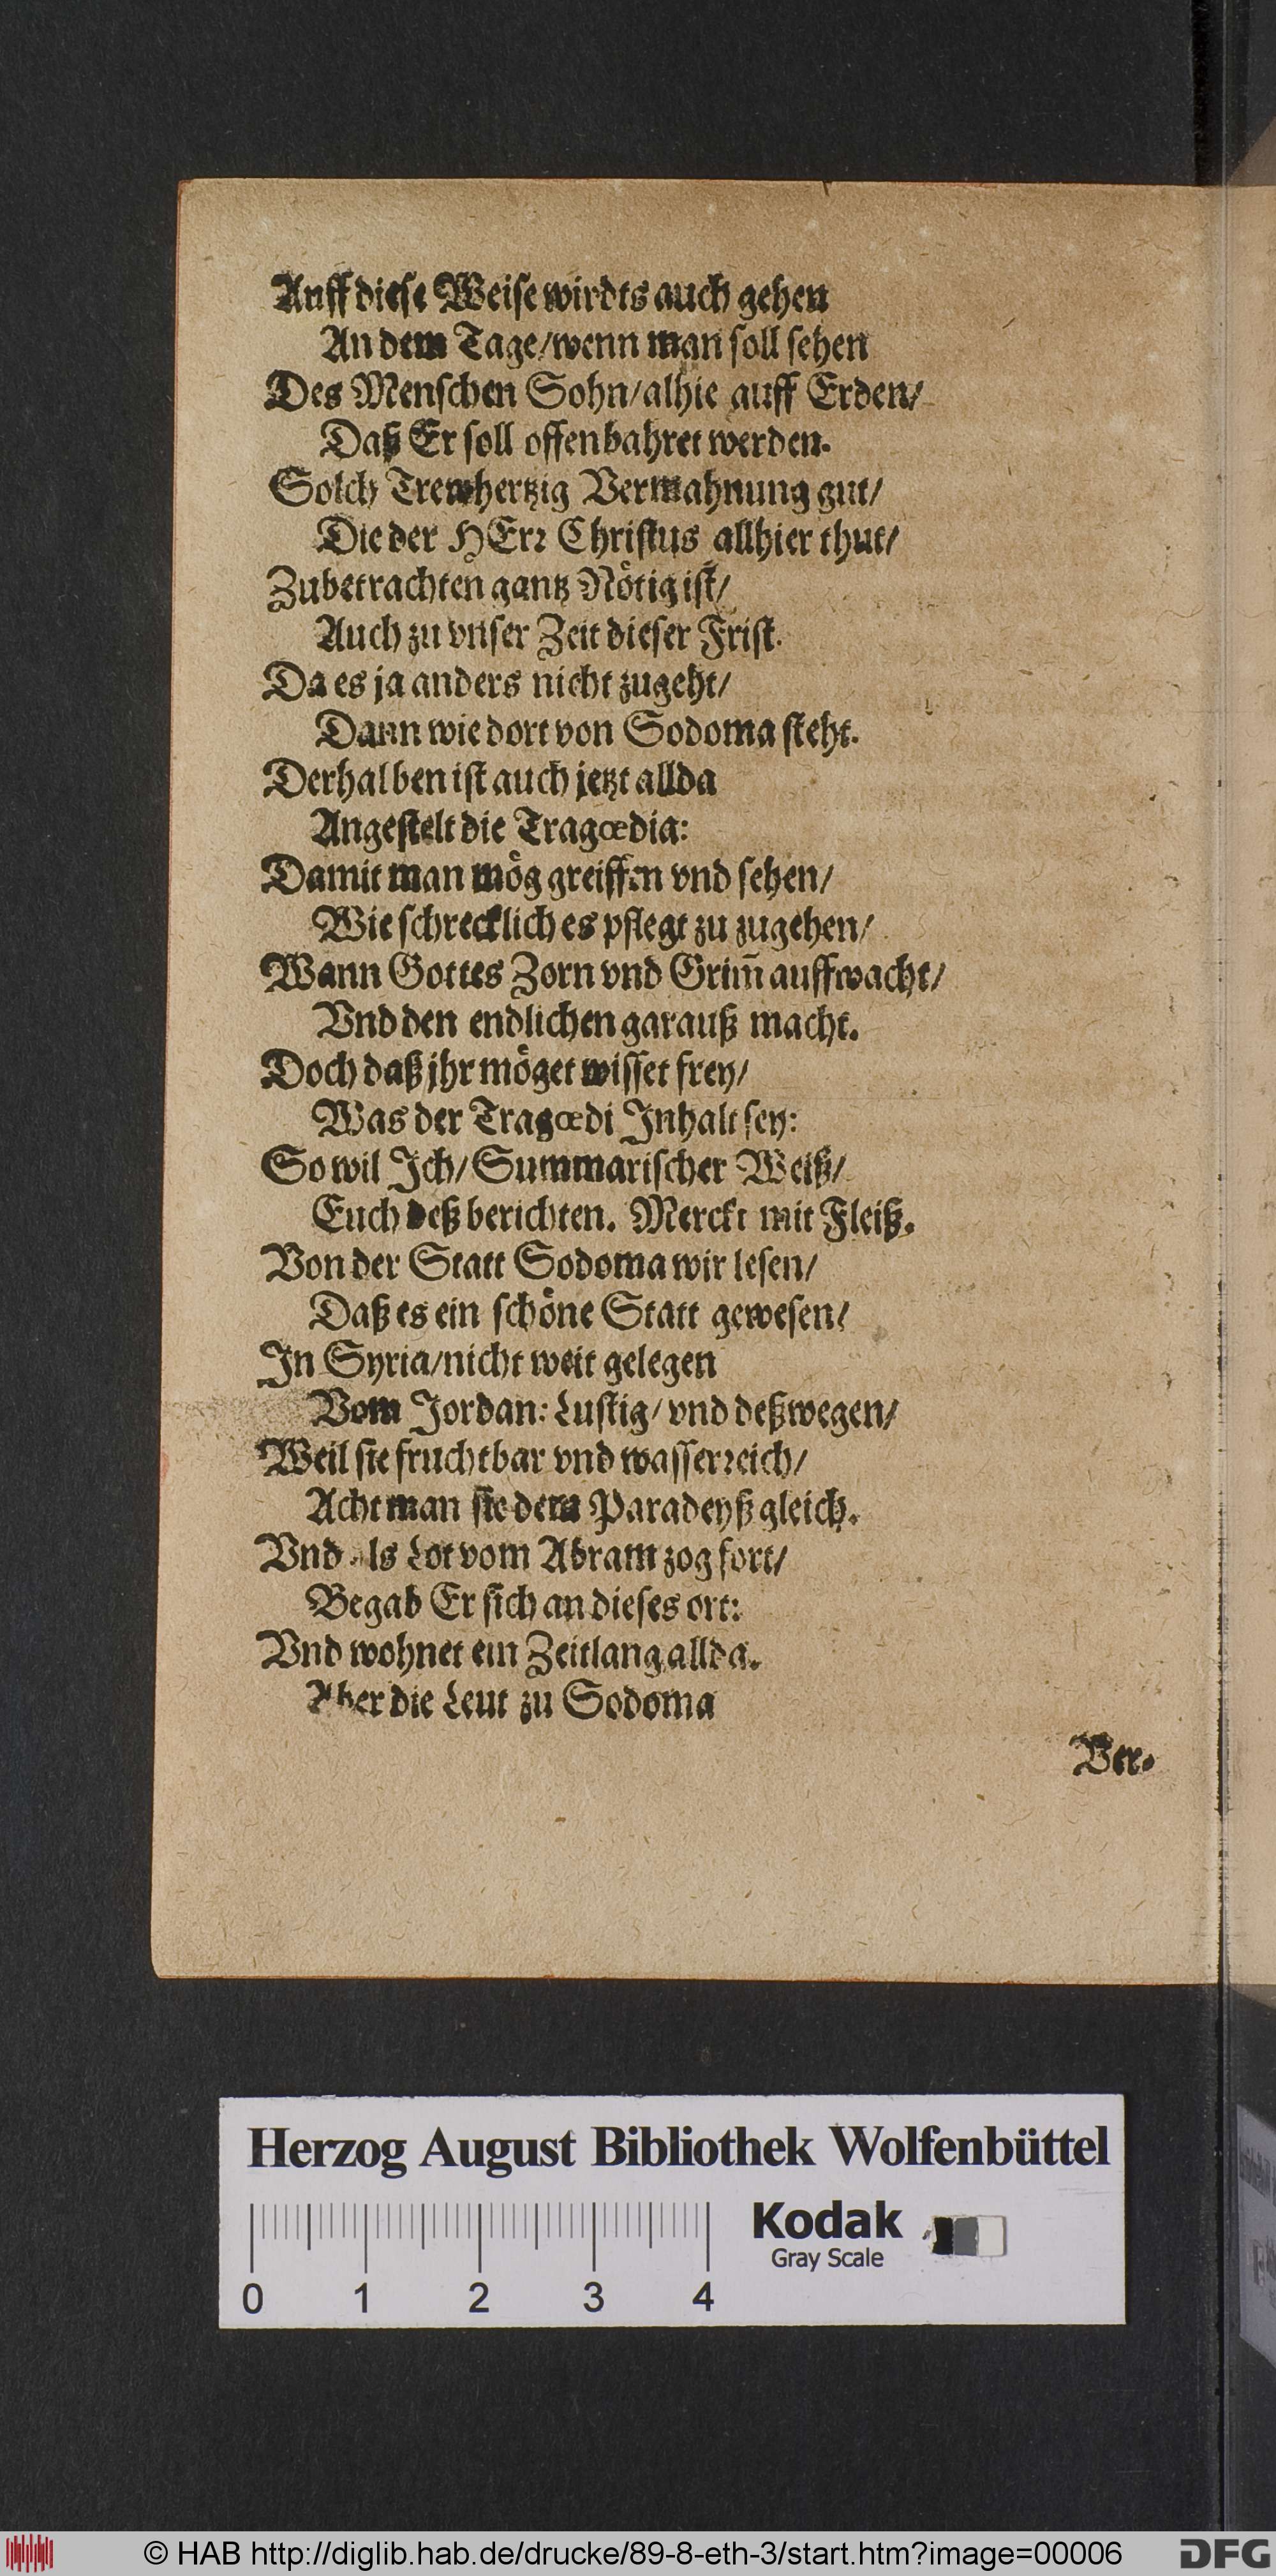 Auff dieſe Weiſe wirdts auch gehen
An dem Tage/wenn man ſoll ſehen
Des Menſchen Sohn/alhie auff Erden/
Daß Er ſoll offenbahret werden.
Solch Trewhertzig Vermahnung gut/
Die der HErꝛ Chriſtus allhier thut/
Zubetrachten gantz Nötig iſt/
Auch zu vnſer Zeit dieſer Friſt.
Da es ja anders nicht zugeht/
Dann wie dort von Sodoma ſteht.
Derhalben iſt auch jetzt allda
Angeſtelt die Tragœdia:
Damit man mög greiffen vnd ſehen/
Wie ſchrecklich es pflegt zu zugehen/
Wann Gottes Zorn vnd Grim̃ auffwacht/
Vnd den endlichen garauß macht.
Doch daß jhr möget wiſſet frey/
Was der Tragœdi Inhalt ſey:
So wil Ich/Summariſcher Weiß/
Euch deß berichten. Merckt mit Fleiß.
Von der Statt Sodoma wir leſen/
Daß es ein ſchöne Statt geweſen/
In Syria/nicht weit gelegen
Vom Jordan: Luſtig/vnd deßwegen/
Weil ſie fruchtbar vnd waſſerꝛeich/
Acht man ſie dem Paradeyß gleich.
Vnd als Lot vom Abram zog fort/
Begab Er ſich an dieſes ort:
Vnd wohnet ein Zeitlang allda.
Aber die Leut zu Sodoma
Ver-
Herzog August Bibliothek Wolfenbüttel
Kodak
Gray Scale
0 1 2 3 4
© HAB http://diglib.hab.de/drucke/89-8-eth-3/start.htm?image=00006
DFG